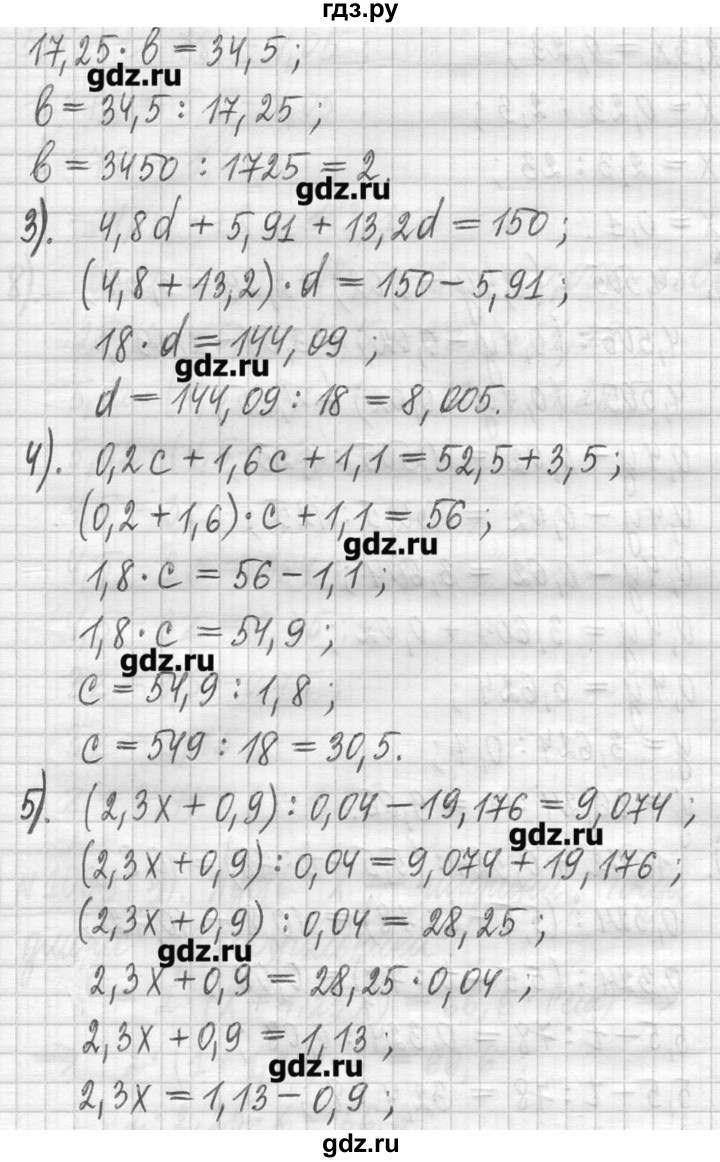 гдз.ру
17,25 · b = 34,5 ;
gdz.ru
b = 34,5 : 17,25 ;
b = 3450 : 1725 = 2.
gdz.ru
3). 4,8d + 5,91 + 13,2d = 150 ;
(4,8 + 13,2) · d = 150 - 5,91 ;
18 · d = 144,09 ;
gdz.ru
d = 144,09 : 18 = 8,005.
4). 0,2c + 1,6c + 1,1 = 52,5 + 3,5 ;
(0,2 + 1,6) · c + 1,1 = 56 ;
gdz.ru
1,8 · c = 56 - 1,1 ;
1,8 · c = 54,9 ;
gdz.ru
c = 54,9 : 1,8 ;
c = 549 : 18 = 30,5.
5). (2,3x + 0,9) : 0,04 - 19,176 = 9,074 ;
gdz.ru
(2,3x + 0,9) : 0,04 = 9,074 + 19,176 ;
(2,3x + 0,9) : 0,04 = 28,25 ;
gdz.ru
2,3x + 0,9 = 28,25 · 0,04 ;
2,3x + 0,9 = 1,13 ;
gdz.ru
2,3x = 1,13 - 0,9 ;
gdz.ru